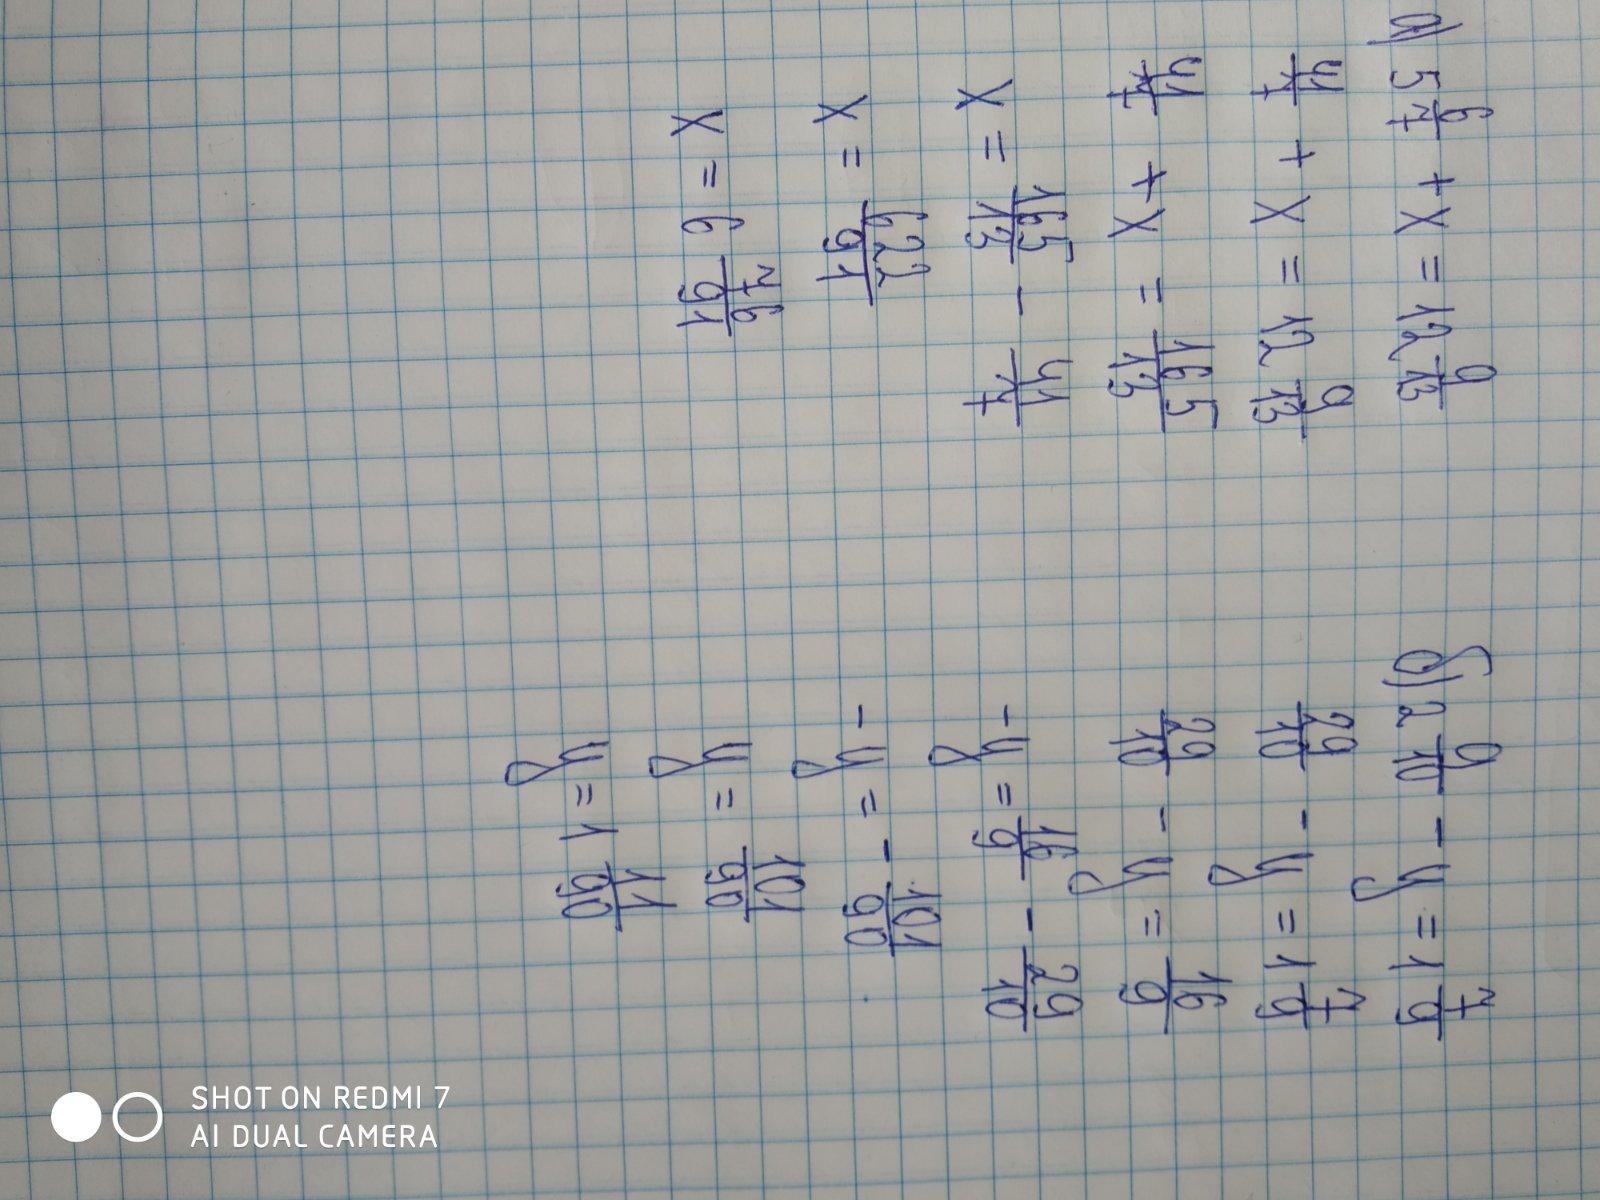 а) 5 6/7 + x = 12 9/13
41/7 + x = 12 9/13
41/7 + x = 165/13
x = 165/13 - 41/7
x = 622/91
x = 6 76/91
б) 2 9/10 - y = 1 7/9
29/10 - y = 1 7/9
29/10 - y = 16/9
- y = 16/9 - 29/10
- y = - 101/90
y = 101/90
y = 1 11/90
SHOT ON REDMI 7
AI DUAL CAMERA